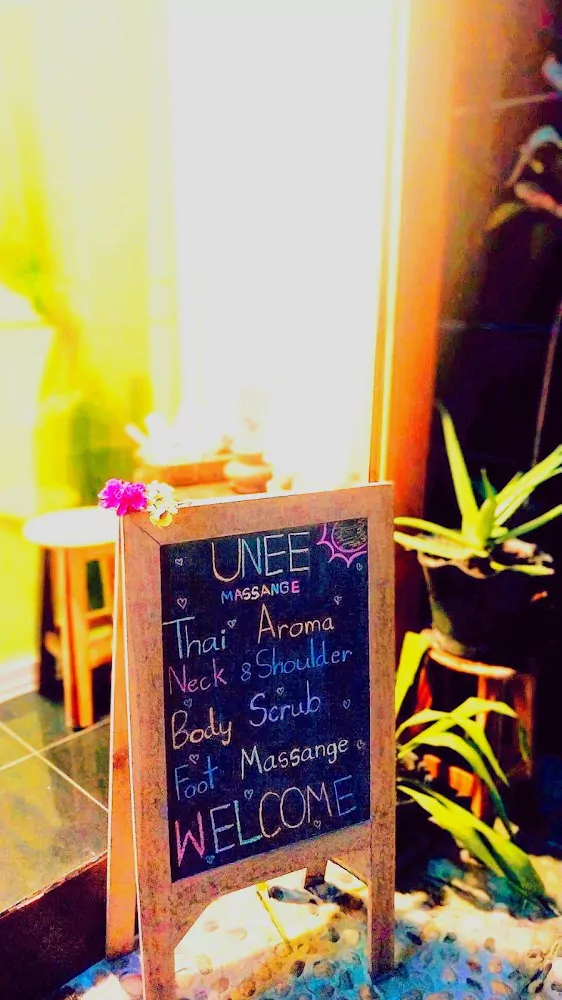 UNEE
MASSANGE
Thai Aroma
Neck & Shoulder
Body Scrub
Foot Massange
WELCOME